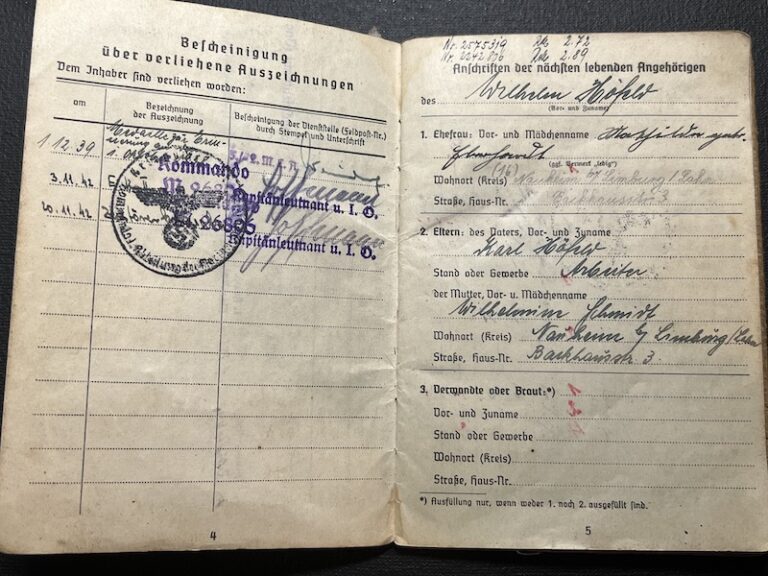 Bescheinigung
über verliehene Auszeichnungen
Dem Inhaber sind verliehen worden:
am
Bezeichnung
der Auszeichnung
Bescheinigung der Dienststelle (Feldpost-Nr.)
durch Stempel und Unterschrift
1.12.39
Medaille zur Erin-
1. Oktober 1938
Kommando
M 26895
3.11.42
Kapitänleutnant u. I. O.
20.11.42
26895
Kapitänleutnant u. I. O.
4
Nr. 2575319 2.72
Nr. 2242896 2.89
Anschriften der nächsten lebenden Angehörigen
des Wilhelm Höfeld
(Vor- und Zuname)
1. Ehefrau: Vor- und Mädchenname Mathilde geb.
Eberhardt
(ggf. Vermerk „ledig")
Wohnort (Kreis) Nauheim b/ Limburg/Lahn
Straße, Haus-Nr. Backhausstr 3
2. Eltern: des Vaters, Vor- und Zuname
Karl Höfeld
Stand oder Gewerbe Arbeiter
der Mutter, Vor- u. Mädchenname
Wilhelmine Schmidt
Wohnort (Kreis) Nauheim b/ Limburg/Lahn
Straße, Haus-Nr. Backhausstr 3.
3. Verwandte oder Braut:*)
Vor- und Zuname
Stand oder Gewerbe
Wohnort (Kreis)
Straße, Haus-Nr.
*) Ausfüllung nur, wenn weder 1. noch 2. ausgefüllt sind.
5